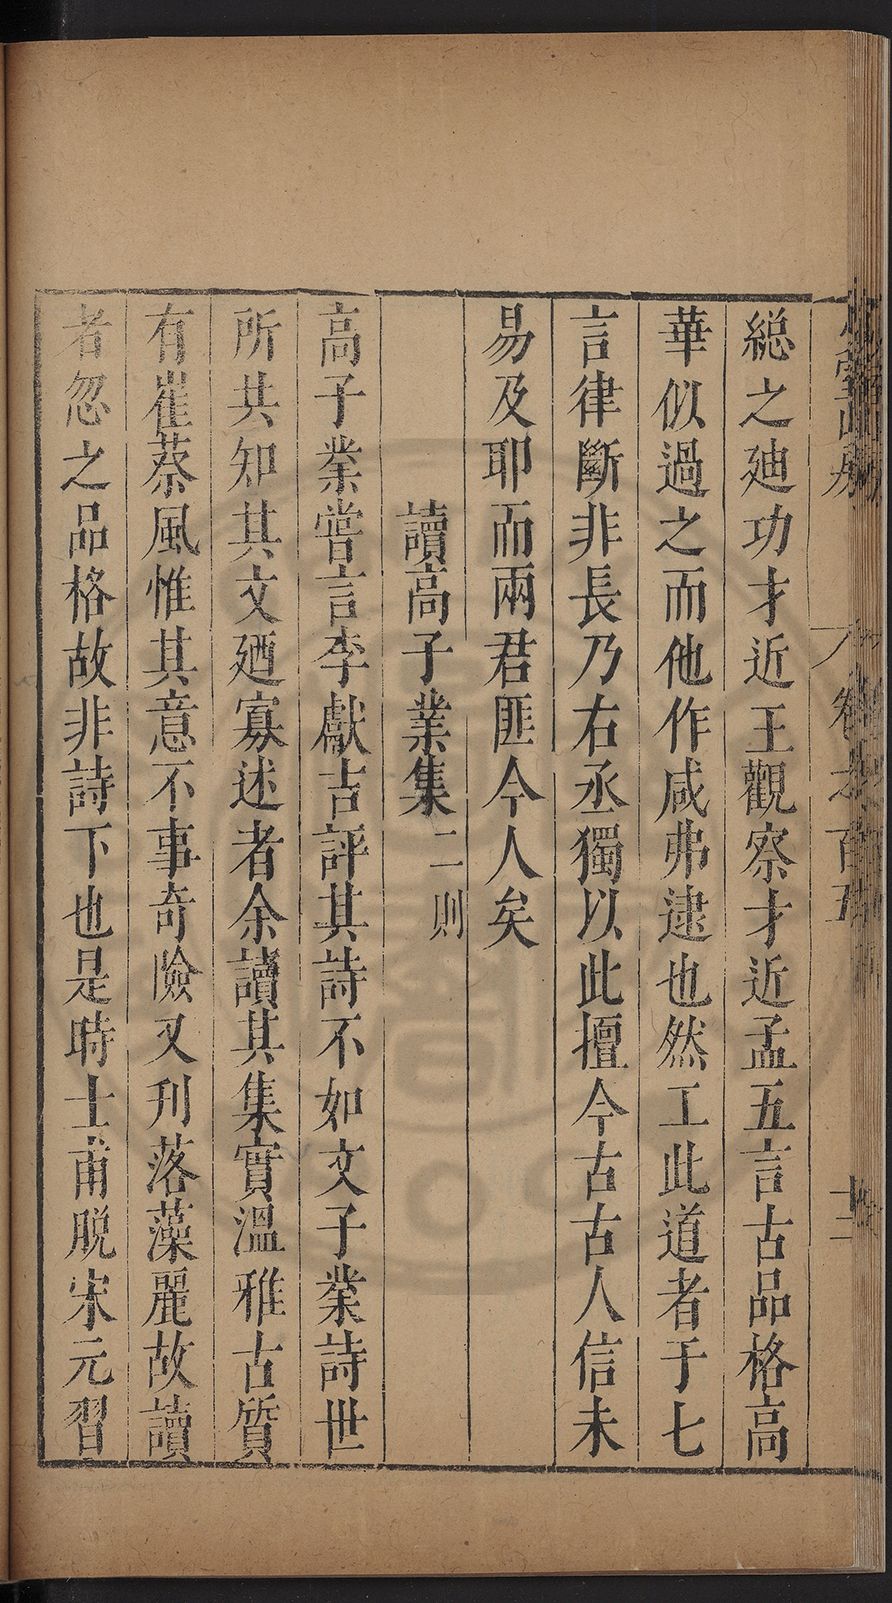 總之廸功才近王觀察才近孟五言古品格高
華似過之而他作咸弗逮也然工此道者于七
言律斷非長乃右丞獨以此擅今古古人信未
易及耶而兩君匪今人矣
讀高子業集二則
高子業嘗言李獻吉評其詩不如文子業詩世
所共知其文廼寡述者余讀其集實溫雅古質
有崔蔡風惟其意不事奇險又刋落藻麗故讀
者忽之品格故非詩下也是時士甫脫宋元習